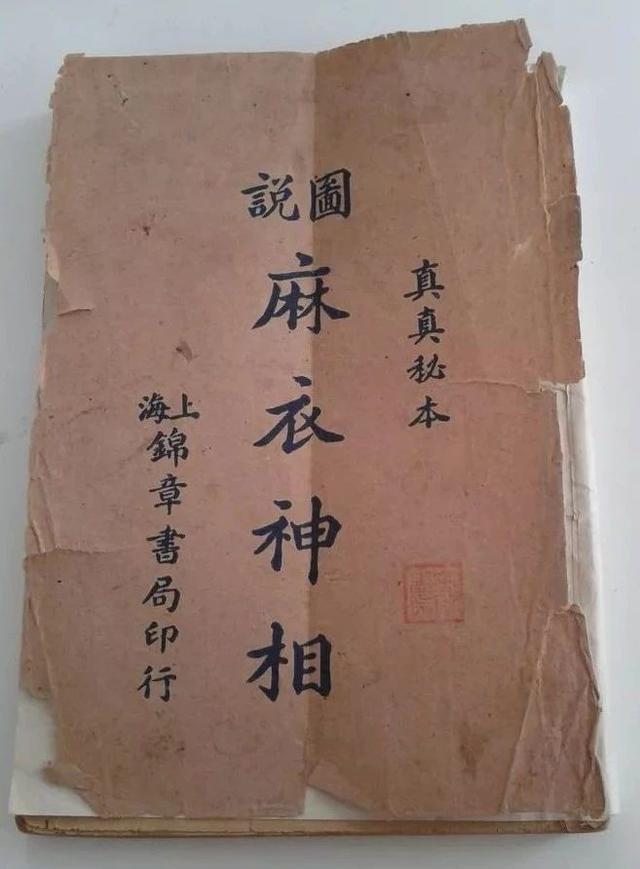 真真秘本
圖說
麻衣神相
上海
錦章書局印行